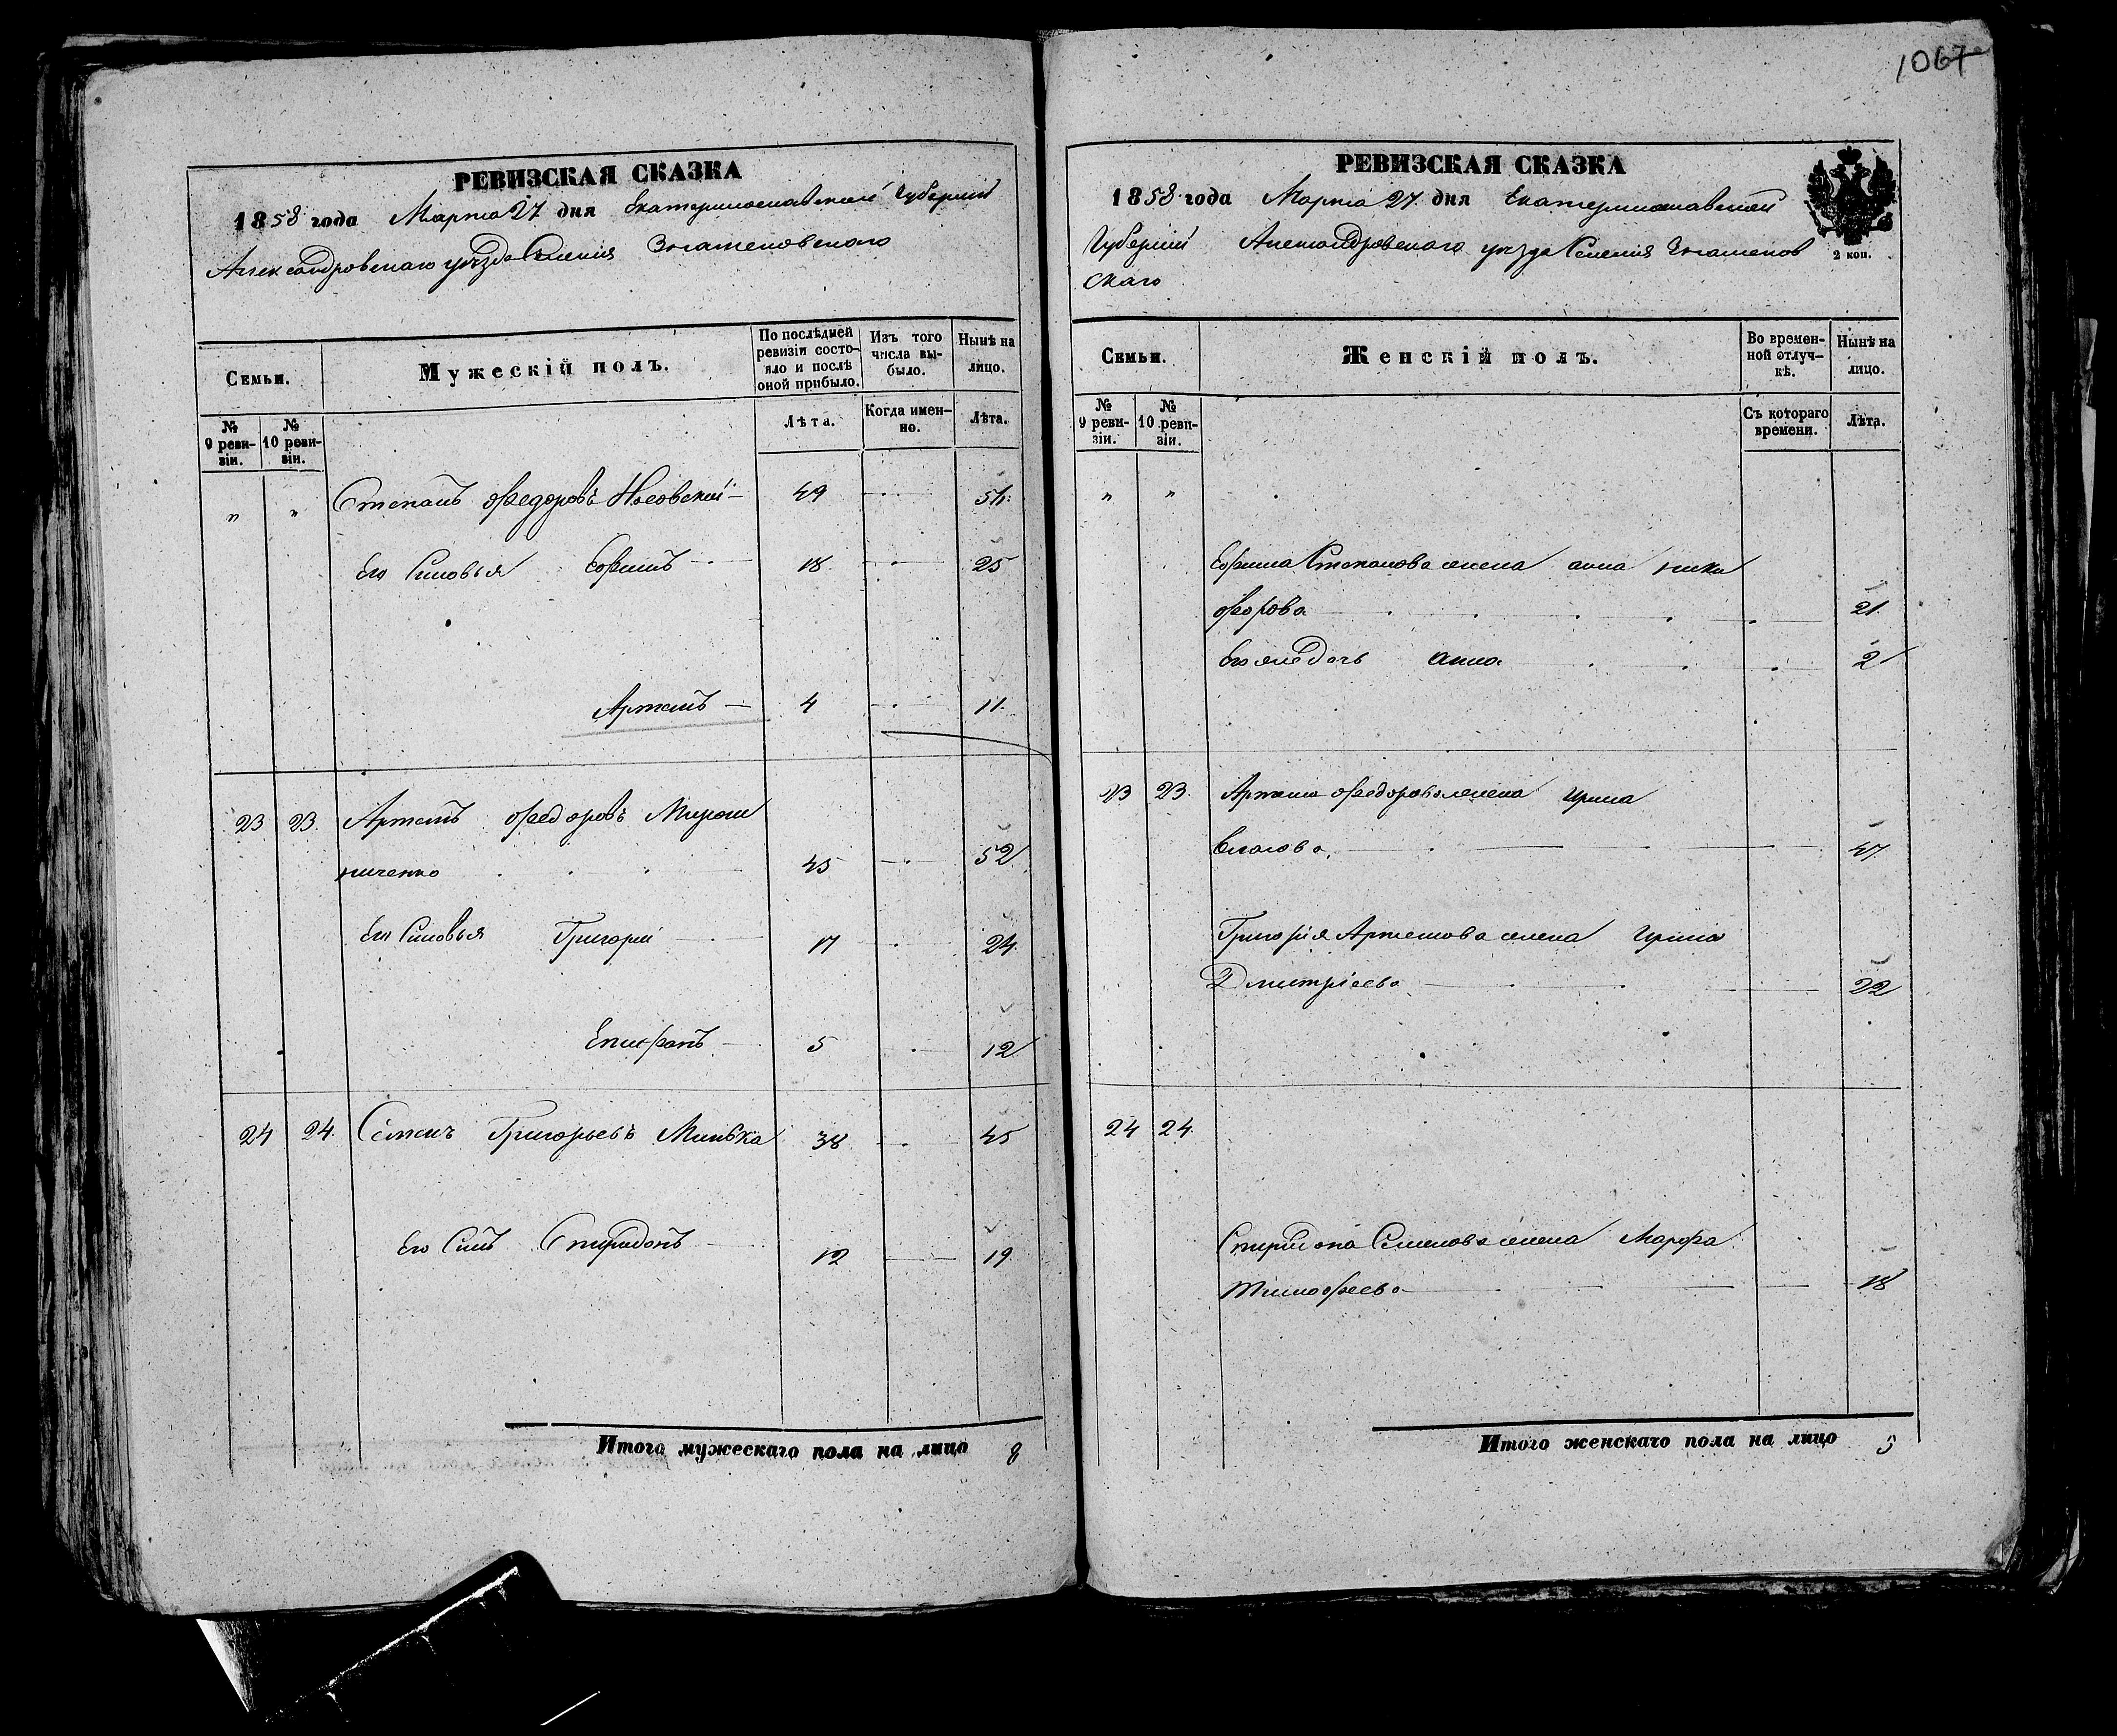 1067
РЕВИЗСКАЯ СКАЗКА
1858 года Марта 27 дня Екатеринославской Губерніи
Александровскаго уѣзда Селенія Знаменовскаго
Семьи.
Мужескій полъ.
По послѣдней ревизіи состояло и послѣ оной прибыло.
Изъ того числа выбыло.
Нынѣ на лицо.
№ 9 ревизіи.
№ 10 ревизіи.
Лѣта.
Когда именно.
Лѣта.
" " Степанъ Федоровъ 49 54
Его Сыновья Ефимъ 18 25
Артемъ 4 11
23 23 Артемъ Федоровъ Мирош
ниченко 45 52
Его Сыновья Григорій 17 24
Епифанъ 5 12
24 24 Семенъ Григорьевъ Минька 38 45
Его Сынъ Спиридонъ 12 19
Итого мужескаго пола на лицо 8
РЕВИЗСКАЯ СКАЗКА
1858 года Марта 27 дня Екатеринославской
Губерніи Александровскаго уѣзда Селенія Знаменов
скаго
2 коп.
Семьи.
Женскій полъ.
Во временной отлучкѣ.
Нынѣ на лицо.
№ 9 ревизіи.
№ 10 ревизіи.
Съ котораго времени.
Лѣта.
" "
Ефима Степанова жена анна ники
форова 21
Его же дочь анна 2
23 23 Артема Федорова жена Ирина
Власова 47
Григорія Артемова жена Ирина
Дмитріева 22
24 24
Спиридона Семенова жена Марфа
Тимофеева 18
Итого женскаго пола на лицо 5